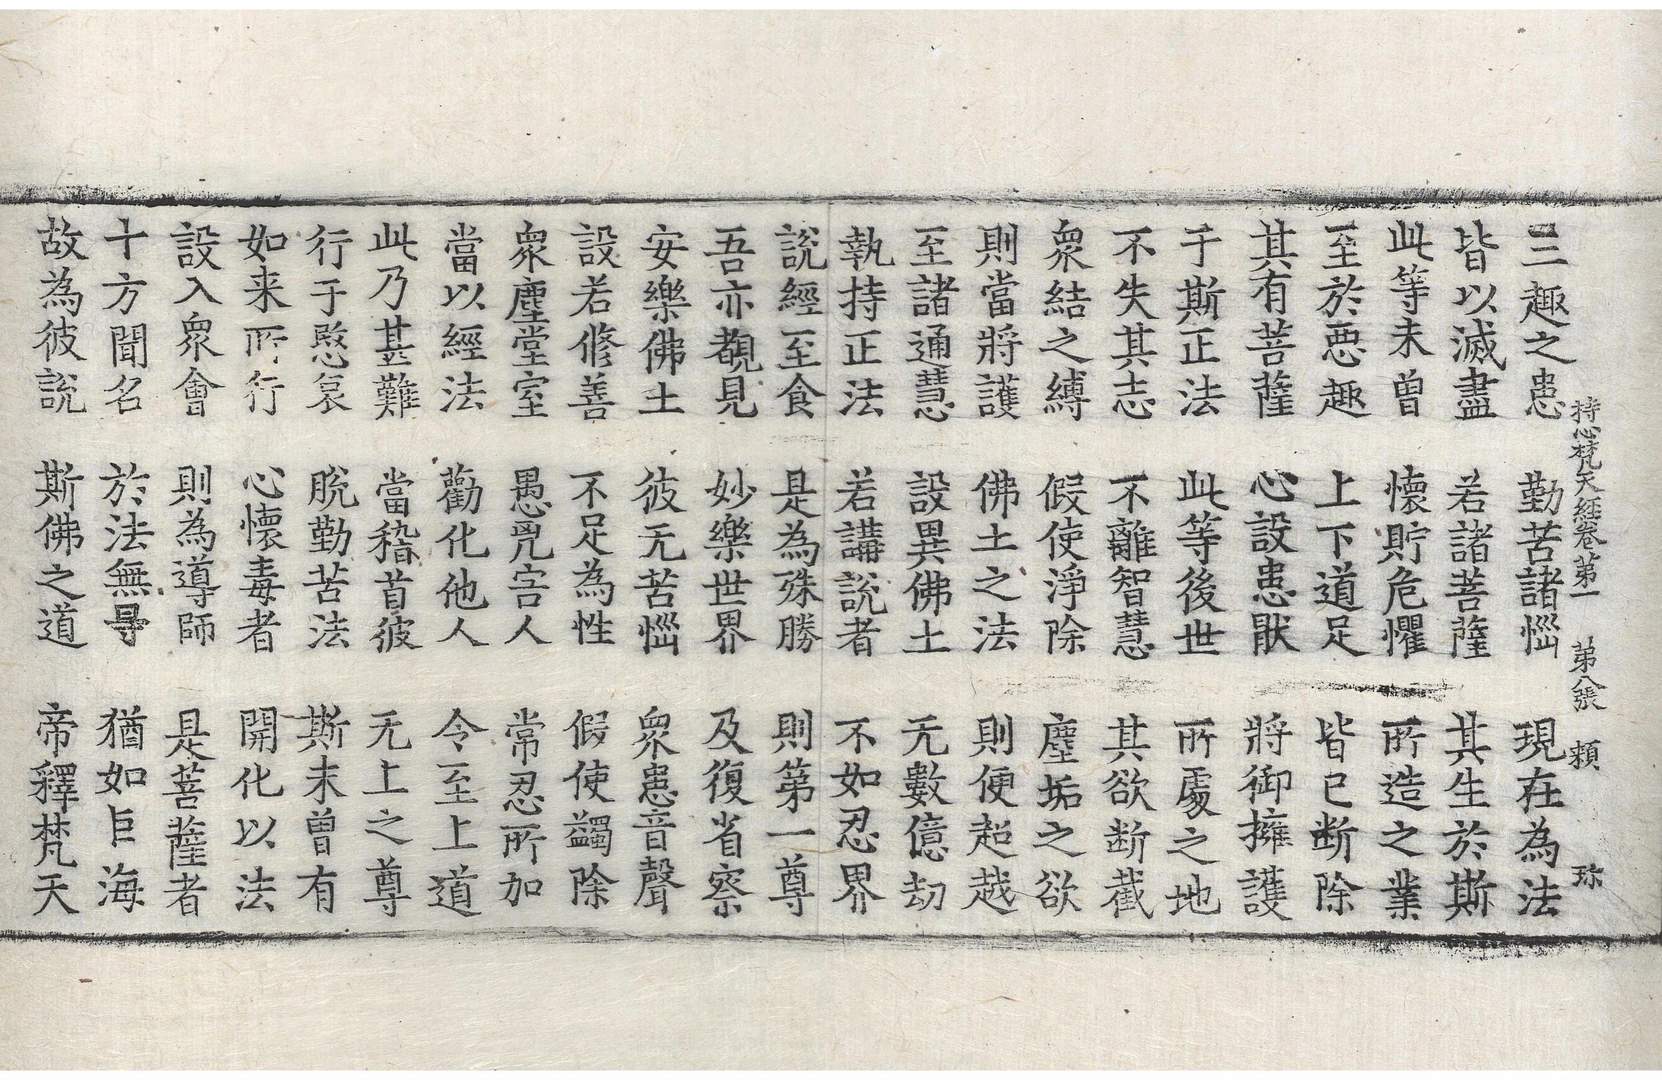 持心梵天經卷第一　第八張　賴　珎
三趣之患　勤苦諸惱　現在為法
皆以滅盡　若諸菩薩　其生於斯
此等未曾　懷貯危懼　所造之業
至於悪趣　上下道足　皆已断除
其有菩薩　心設患猒　將御擁護
于斯正法　此等後世　所處之地
不失其志　不離智慧　其欲断截
衆結之縛　假使淨除　塵垢之欲
則當將護　佛土之法　則便超越
至諸通慧　設異佛土　无數億劫
執持正法　若講說者　不如忍界
說經至食　是為殊勝　則第一尊
吾亦覩見　妙樂世界　及復省察
安樂佛土　彼无苦惱　衆患音聲
設若修善　不足為性　假使蠲除
衆塵堂室　愚凢害人　常忍所加
當以經法　勸化他人　令至上道
此乃甚難　當稽首彼　无上之尊
行于愍哀　脫勤苦法　斯未曾有
如来所行　心懷毒者　開化以法
設入衆會　則為導師　是菩薩者
十方聞名　於法無㝵　猶如巨海
故為彼說　斯佛之道　帝釋梵天